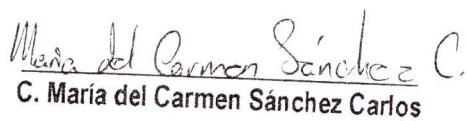 María del Carmen Sánchez C.
C. María del Carmen Sánchez Carlos